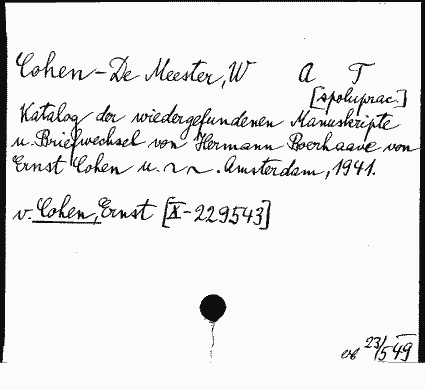 Cohen-De Meester, W A T
[spoluprac.]
Katalog der wiedergefundenen Manuskripte
u. Briefwechsel von Hermann Boerhaave von
Ernst Cohen u. ~ ~. Amsterdam, 1941.
v. Cohen, Ernst [X-229543]
23/5 49